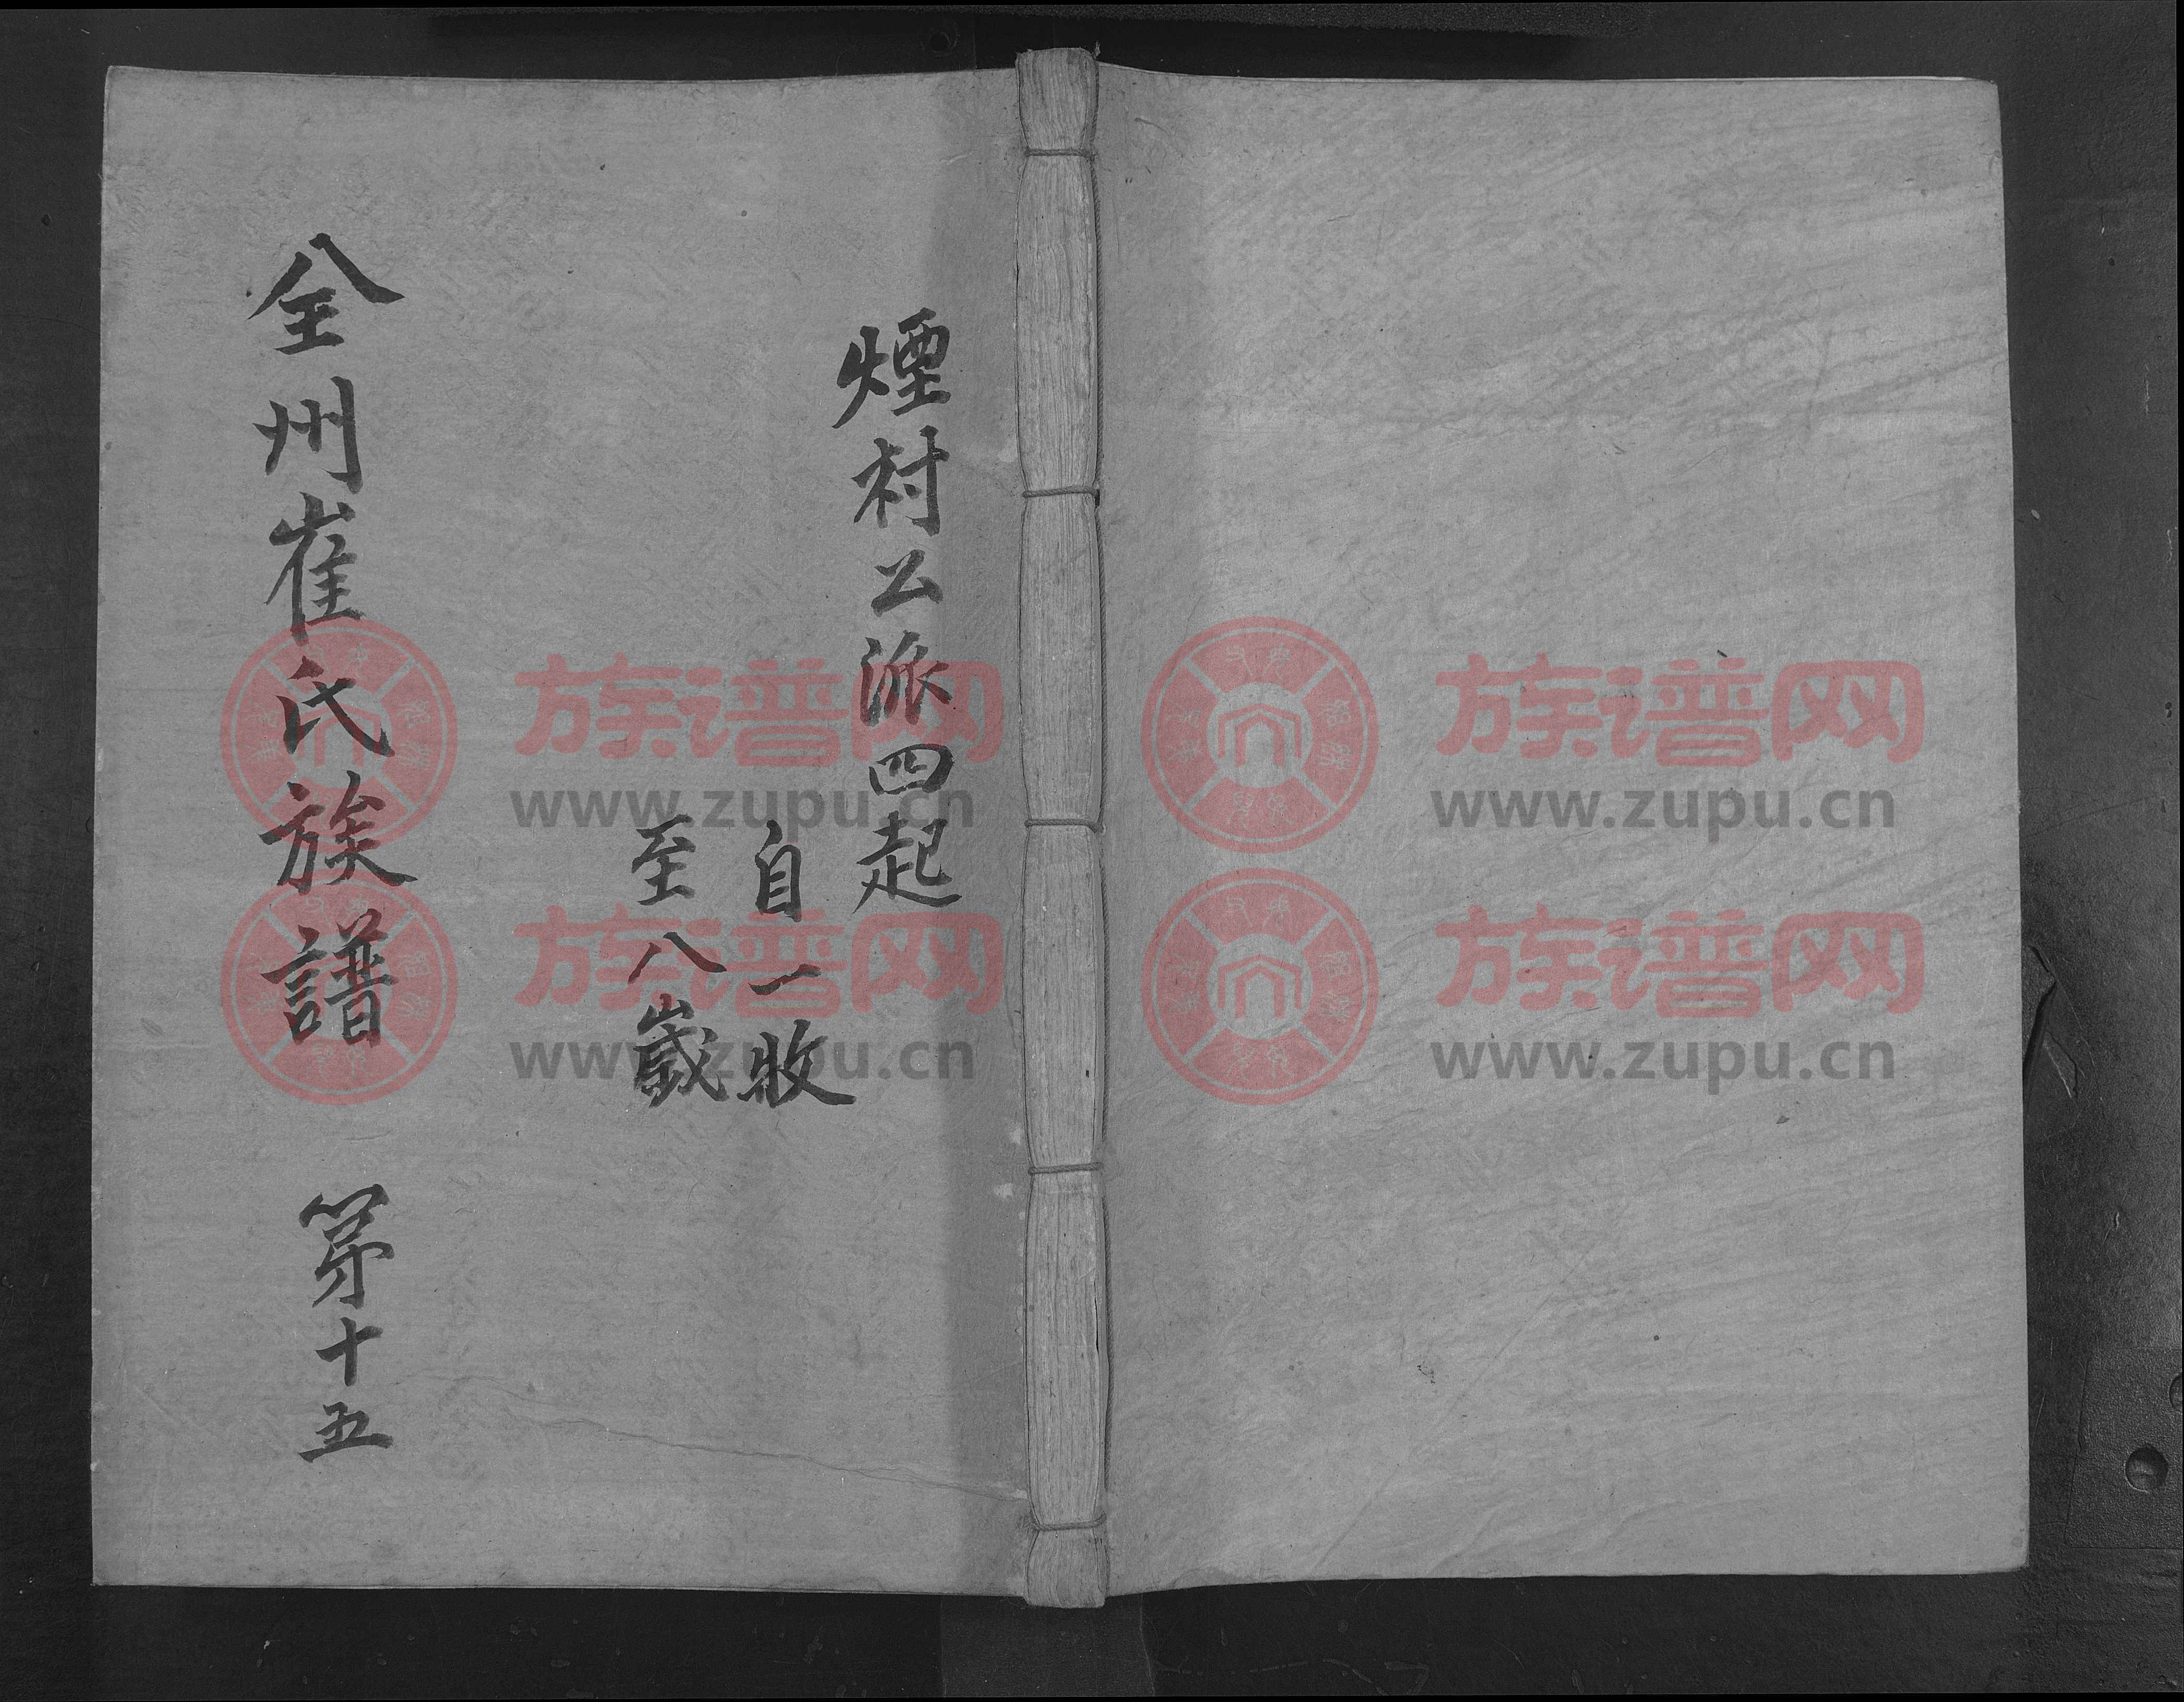 煙村公派四起
自一收
至八歲
全州崔氏族譜 第十五
族谱网
www.zupu.cn
族谱网
www.zupu.cn
族谱网
www.zupu.cn
族谱网
www.zupu.cn